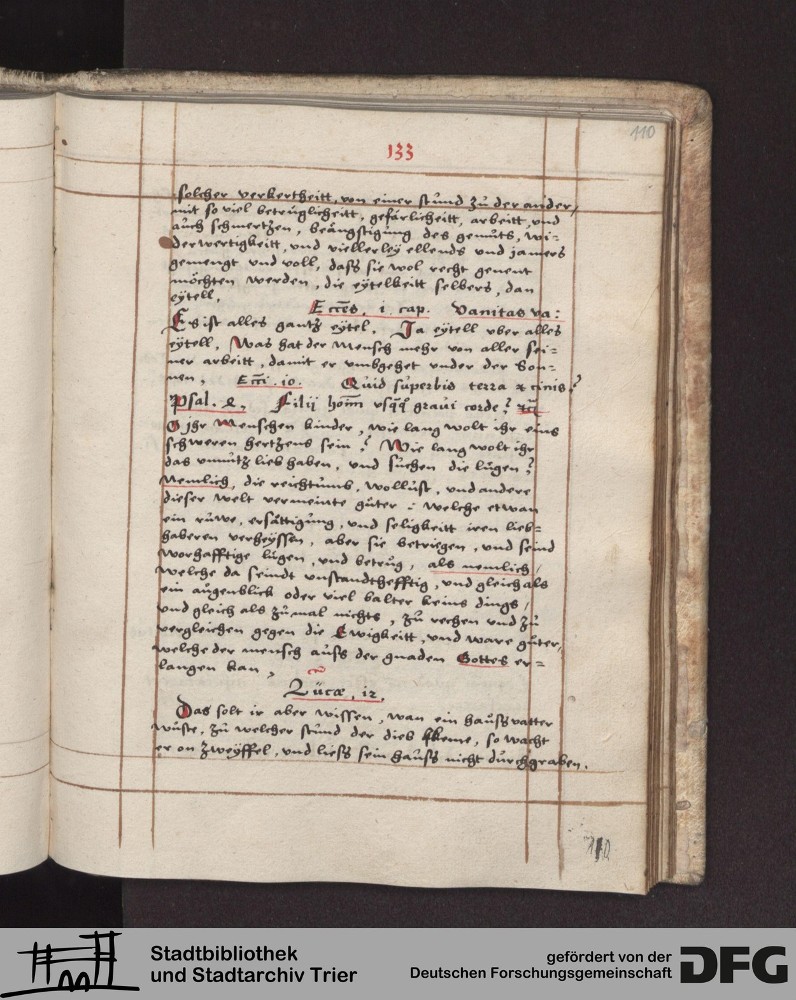 110
133
solcher verkertheitt, von einer stund zu der ander,
mit so viel betrüglicheitt, gefärlicheitt, arbeitt, und
auch schmertzen, beängstigung des gemüts, wi-
derwertigkeitt, und viellerley ellends und jamers
gemengt und voll, dass sie wol recht genent
möchten werden, die eytelkeitt selbers, dan
eytell,
Eccēs. i. cap. Vanitas va:
Es ist alles gantz eytel. Ja eytell vber alles
eytell, Was hat der Mensch mehr von aller sei-
ner arbeitt, damit er vmbgehet vnder der Son-
nen, Ecci. io. Quid superbis terra et cinis?
Psal. 4, Filij hom̄ vsq̄ graui corde?
O jhr Menschen kinder, wie lang wolt ihr eins
schweren hertzens sein? Wie lang wolt ihr
das vnnutz lieb haben, und suchen die lügen?
Nemlich, die reichtumb, wollust, und andere
dieser welt vermeinte güter: welche etwan
ein ruwe, ersättigung, und seligkeitt iren lieb-
haberen verheyssen, aber sie betriegen, und seind
worhafftige lügen, und betrug, als nemlich,
welche da seindt vnstandthefftig, und gleich als
ein augenblick oder viel balter keins dings,
und gleich als zumal nichts, zu rechen und zu
vergleichen gegen die Ewigkeitt, und ware güter,
welche der mensch auss der gnaden Gottes er-
langen kan,
Lucæ, 12,
Das solt ir aber wissen, wan ein haussvatter
wuste, zu welcher stund der dieb keme, so wacht
er on zweyffel, und liess sein hauss nicht durchgraben.
110
Stadtbibliothek
und Stadtarchiv Trier
gefördert von der
Deutschen Forschungsgemeinschaft
DFG